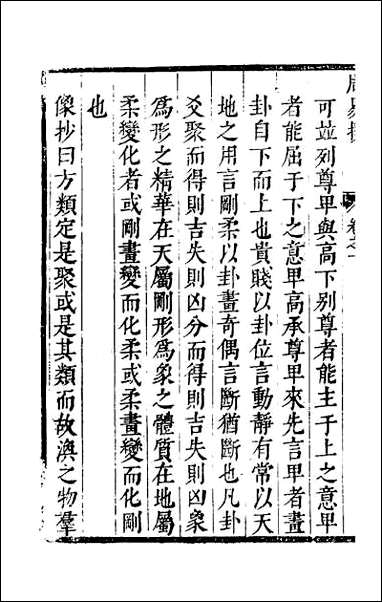 可竝列尊卑與高下别尊者能主于上之意卑
者能屈于下之意卑高承尊卑來先言卑者畫
卦自下而上也貴賤以卦位言動靜有常以天
地之用言剛柔以卦畫奇偶言斷猶斷也凡卦
爻聚而得則吉失則凶分而得則吉失則凶象
爲形之精華在天屬剛形爲象之體質在地屬
柔變化者或剛畫變而化柔或柔畫變而化剛
也
像抄曰方類定是聚或是其類而故渙之物羣